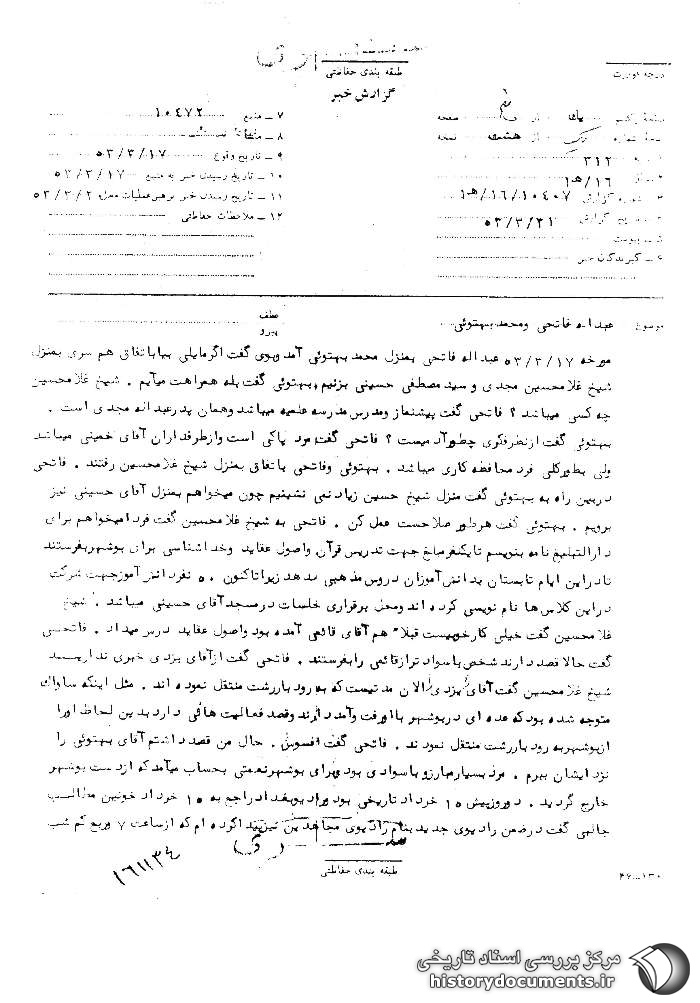 طبقه بندی حفاظتی
گزارش خبر
درجه فوریت
۱ـ
۲ـ
۳ـ شماره گزارش ۱۰۴۰۷ / ۱۶ / ه‍ ۱
۱۶ / ه‍ ۱
۳۱۲
۴ـ تاریخ گزارش ۵۳/۳/۲۱
۵ـ پیوست
۶ـ گیرندگان خبر
۷ـ منبع ۱۰۴۷۲
۸ـ منشأ
۹ـ تاریخ وقوع ۵۳/۳/۱۷
۱۰ـ تاریخ رسیدن خبر به منبع ۵۳/۳/۱۷
۱۱ـ تاریخ رسیدن خبر به رهبر عملیات محل ۵۳/۳/۲
۱۲ـ ملاحظات حفاظتی
موضوع : عبداله فاتحی ومحمد بهتوئی
عطف
پیرو
مورخه ۵۳/۳/۱۷ عبداله فاتحی بمنزل محمد بهتوئی آمد وبوی گفت اگرمایلی بیاباتفاق هم سری بمنزل
شیخ غلامحسین مجدی و سید مصطفی حسینی بزنیم بهتوئی گفت بله همراهت میآیم . شیخ غلامحسین
چه کسی میباشد ؟ فاتحی گفت پیشنماز ومدرس مدرسه علمیه میباشد وهمان پدرعبداله مجدی است .
بهتوئی گفت ازنظرفکری چطورآدمیست ؟ فاتحی گفت مرد پاکی است وازطرفداران آقای خمینی میباشد
ولی بطورکلی فرد محافظه کاری میباشد . بهتوئی وفاتحی باتفاق بمنزل شیخ غلامحسین رفتند . فاتحی
دربین راه به بهتوئی گفت منزل شیخ حسین زیاد نمی نشینیم چون میخواهم بمنزل آقای حسینی نیز
برویم . بهتوئی گفت هرطور صلاحست عمل کن . فاتحی به شیخ غلامحسین گفت فردا میخواهم برای
دارالتبلیغ نامه بنویسم تایکنفرمبلغ جهت تدریس قرآن واصول عقاید وخداشناسی برای بوشهربفرستند
تادراین ایام تابستان بدانش آموزان دروس مذهبی بدهد زیراتاکنون ۵۰ نفردانش آموزجهت شرکت
دراین کلاس ها نام نویسی کرده اند ومحل برقراری جلسات درمسجد آقای حسینی میباشد . شیخ
غلامحسین گفت خیلی کارخوبیست قبلا" هم آقای قائمی آمده بود واصول عقاید درس میداد . فاتحی
گفت حالا قصد دارند شخص باسواد ترازقائمی رابفرستند . فاتحی گفت ازآقای یزدی خبری ندارید
شیخ غلامحسین گفت آقای یزدی الان مدتیست که به رودباررشت منتقل نموده اند . مثل اینکه ساواک
متوجه شده بود که عده ای دربوشهر بااورفت وآمد دارند وقصد فعالیت هائی دارد بدین لحاظ اورا
ازبوشهربه رودباررشت منتقل نمودند . فاتحی گفت افسوس . حال من قصد داشتم آقای بهتوئی را
نزد ایشان ببرم . مرد بسیارمبارزو باسوادی بود وبرای بوشهرنعمتی بحساب میآمد که ازدست بوشهر
خارج گردید . دوروزپیش ۱۵ خرداد تاریخی بود ورادیوبغداد راجع به ۱۵ خرداد خونین مطالب
جالبی گفت درضمن رادیوی جدید بنام رادیوی مجاهدین نیزپیداکرده ام که ازساعت ۷ وربع کم شب
۱۶۱۱۳۴
طبقه بندی حفاظتی
مرکز بررسی اسناد تاریخی
historydocuments.ir